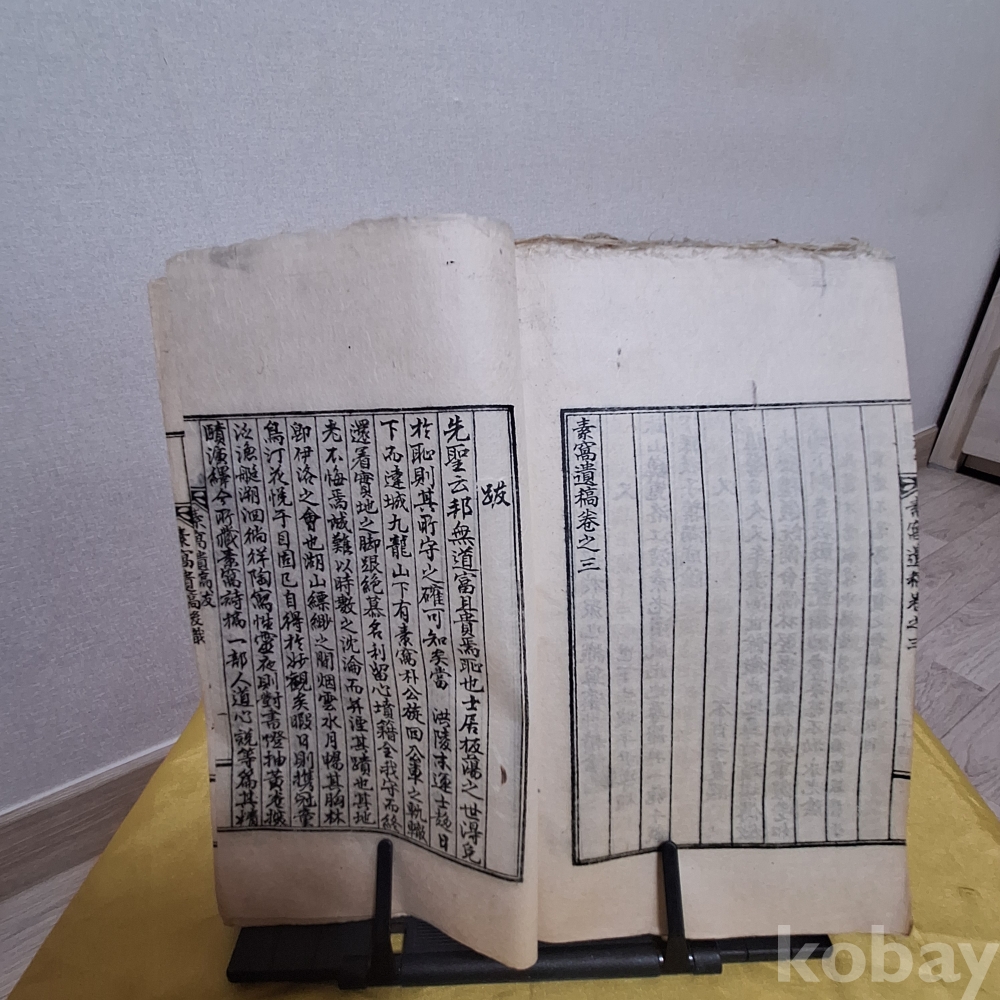 素窩遺稿卷之三
素窩遺稿卷之三
跋
先聖云邦無道富且貴焉恥也士居板蕩之世得免
於恥則其所守之確可知矣當 洪陵末運士趍日
下而達城九龍山下有素窩朴公旋回公車之軌轍
還着實地之脚跟絶慕名利留心墳籍全我守而終
老不悔焉誠難以時數之沈淪而幷湮其蹟也其地
卽伊洛之會也湖山縹緲之間烟雲水月暢其胸林
鳥汀花悅乎目固已自得於妙觀矣暇日則携冠童
泛漁艇溯洄徜徉陶寫性靈夜則對書燈抽黃卷探
賾演繹今所藏素窩詩稿一部人道心說等篇其精
素窩遺稿跋
素窩遺稿後識
kobay